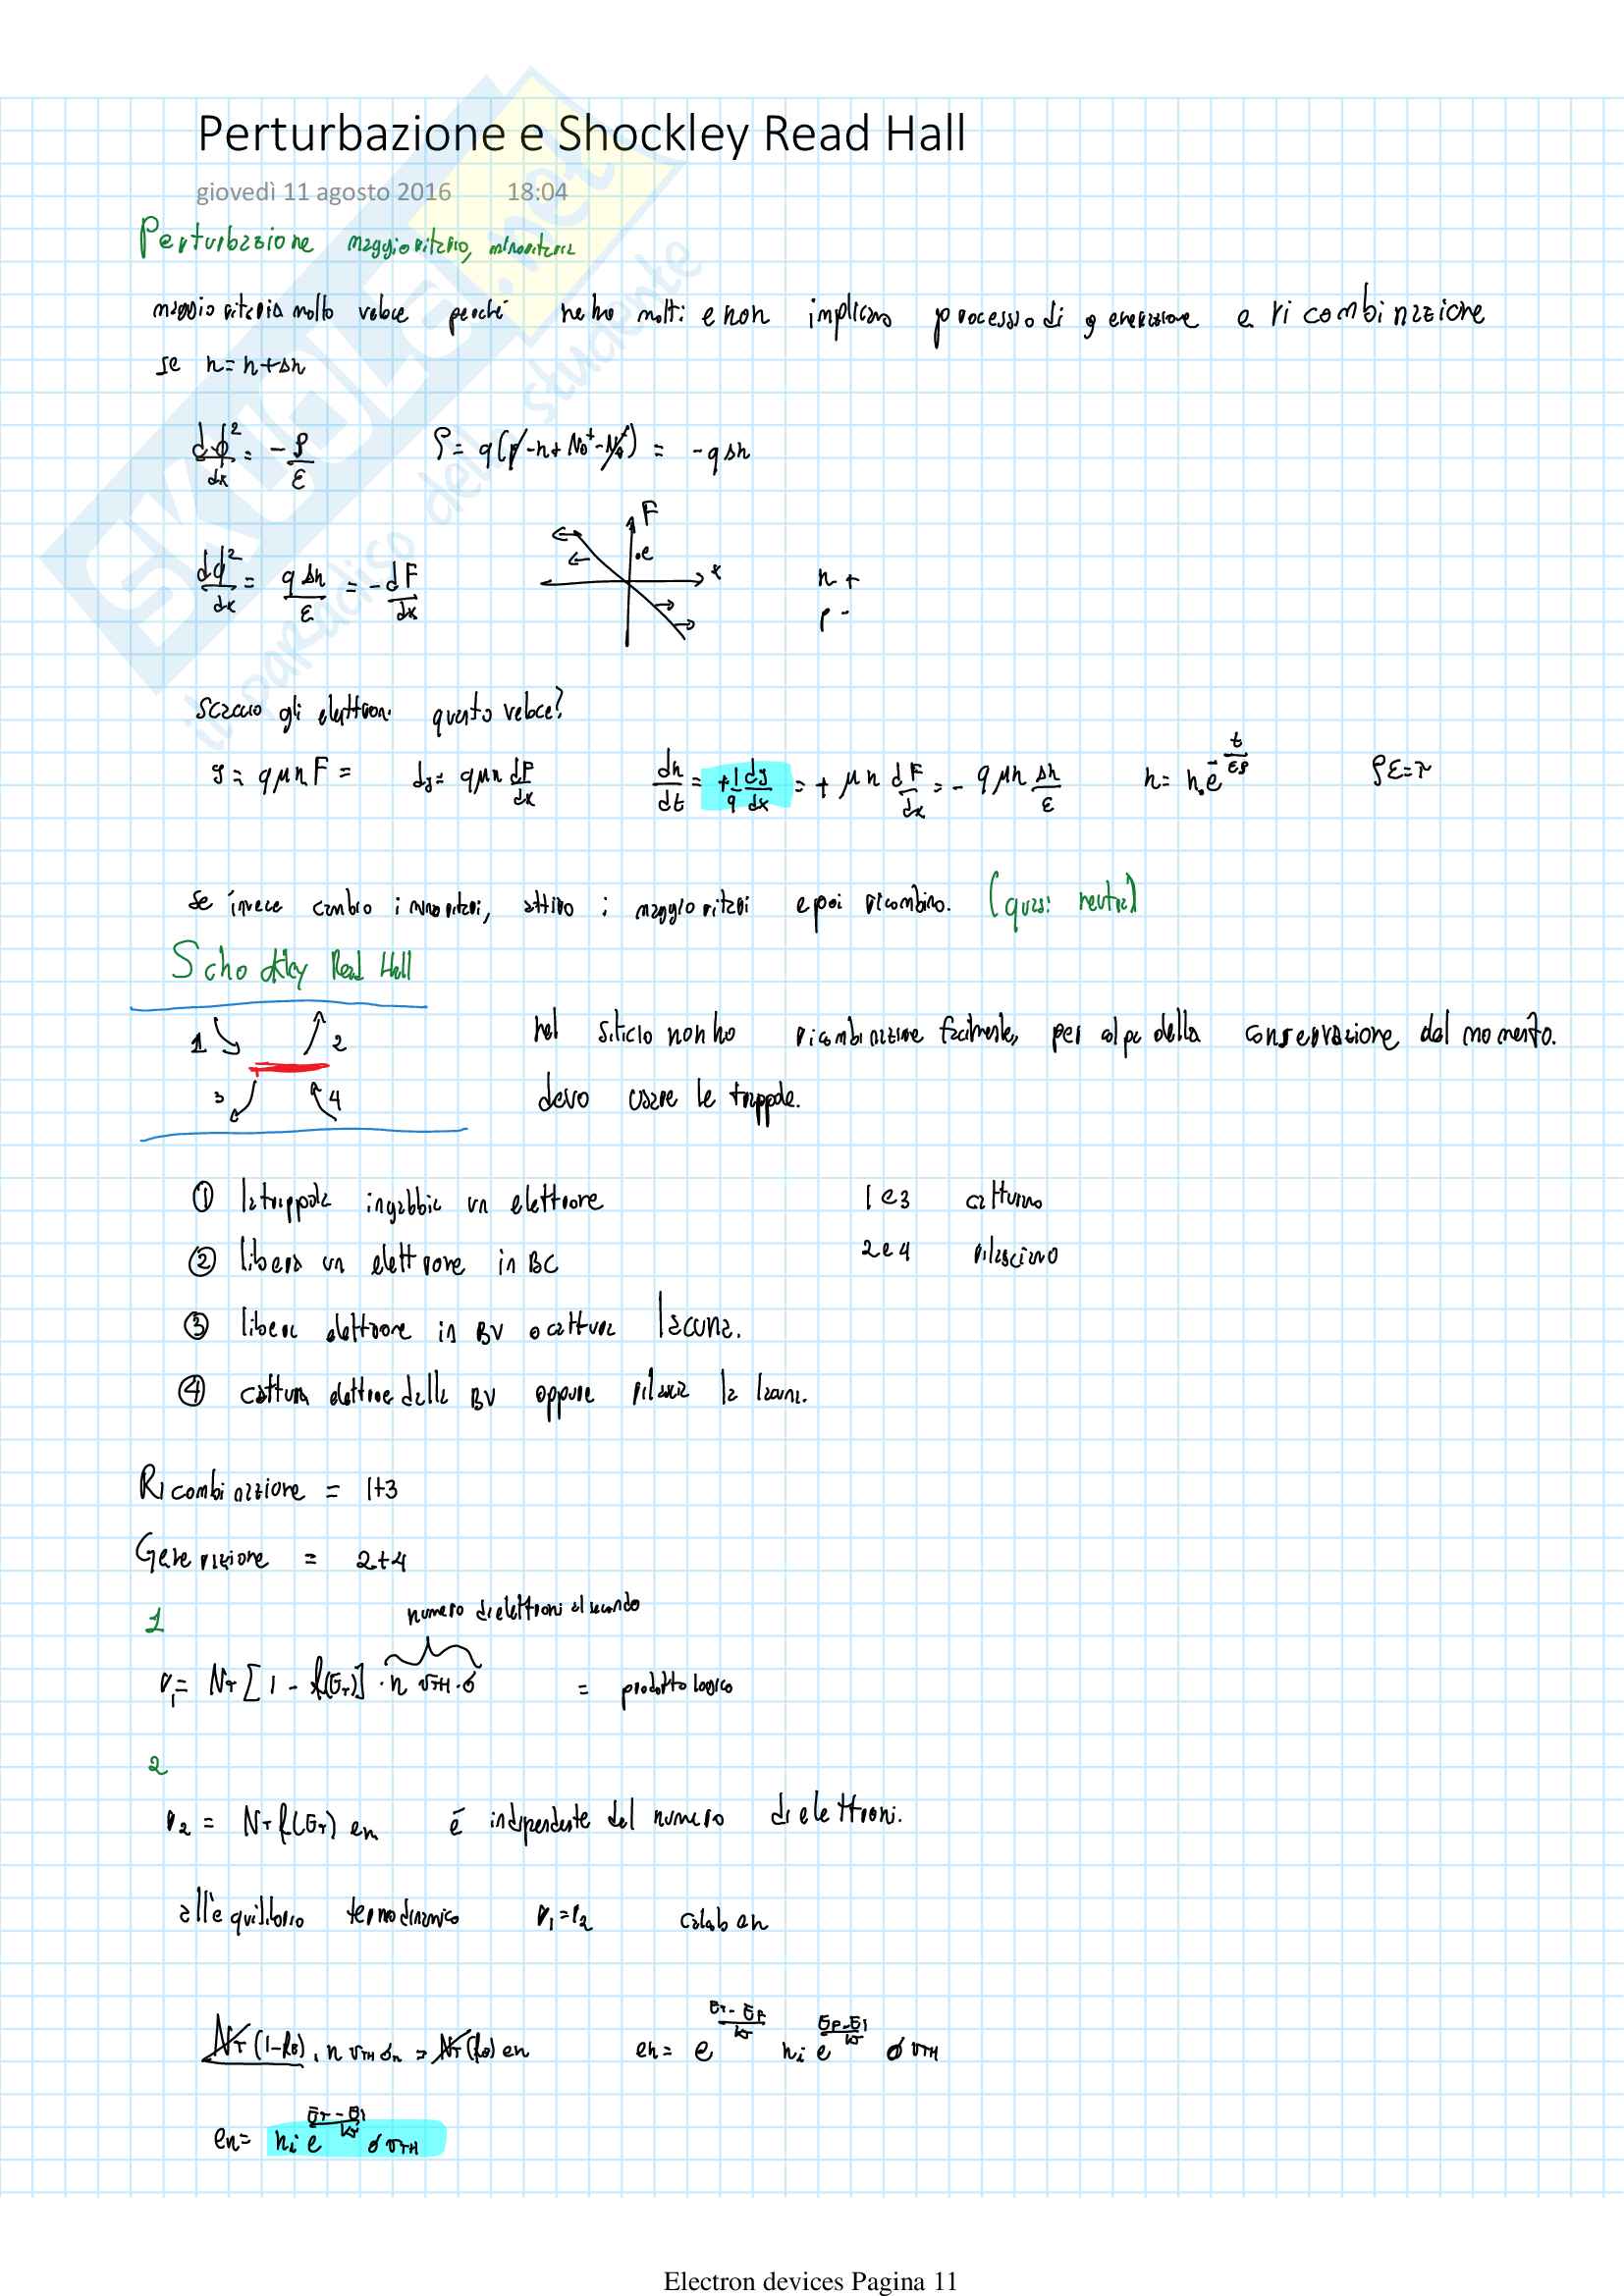 Perturbazione e Shockley Read Hall
giovedì 11 agosto 2016 18:04
Perturbazione maggioritario, minoritaria
maggioritaria molto veloce perché ne ho molti e non implicano processo di generazione e ricombinazione
se n = n+Δn
dφ²/dx = -ρ/ε ρ = q(p-n+N_D⁺-N_A⁻) = -qΔn
dφ²/dx = qΔn/ε = -dF/dx
F
.e
x
n +
p -
scaccio gli elettroni quanto veloce?
J = qμnF = dJ = qμn dF/dx dn/dt = +1/q dJ/dx = +μn dF/dx = -qμn Δn/ε n = n₀e^(-t/ερ) ρε=τ
se invece cambio i minoritari, attivo i maggioritari e poi ricombino. (quasi neutra)
Schockley Read Hall
1 2
3 4
nel silicio non ho ricombinazione facilmente, per colpa della conservazione del momento.
devo usare le trappole.
① la trappola ingabbia un elettrone 1 e 3 catturano
② libera un elettrone in BC 2 e 4 rilasciano
③ libera elettrone in BV o cattura lacuna.
④ cattura elettrone dalla BV oppure rilascia la lacuna.
Ricombinazione = 1+3
Generazione = 2+4
1
numero di elettroni al secondo
r₁ = N_T [1 - f(E_T)] · n v_TH · σ = prodotto logico
2
r₂ = N_T f(E_T) en é indipendente dal numero di elettroni.
all'equilibrio termodinamico r₁=r₂ calcolo en
N_T(1-f₀) · n v_TH σ_n = N_T(f₀) en en = e^((E_T-E_F)/kT) n_i e^((E_F-E_i)/kT) σ v_TH
en = n_i e^((E_T-E_i)/kT) σ v_TH
Electron devices Pagina 11